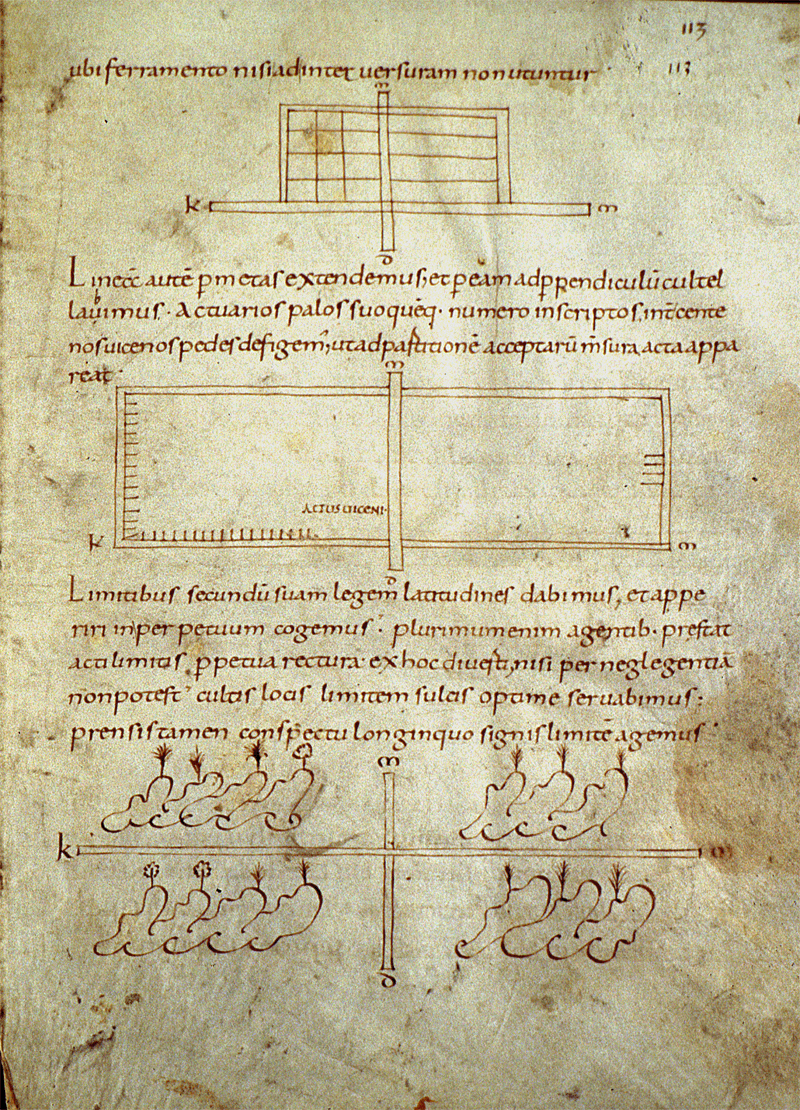 113
ubi ferramento nisi ad inter uersuram non utuntur
113
m
k m
d
Lineā autē p metas extendemus· et p eam ad ppendiculū cultel
labimus· Actuarios palos suo quēq· numero inscriptos, int̄ cente
nos uicenos pedes defigem; ut ad partitionē acceptarū m̄sura acta appa
reat·
m
ACTUS UICENI·
k m
d
Limitibus secundū suam legem latitudines dabimus, et appe
riri in perpetuum cogemus· plurimum enim agentib· prestat
acti limitis ppetua rectura· ex hoc diuerti, nisi per neglegentiā
non potest· cultis locis limitem sulcis optime seruabimus:
prensis tamen conspectu longinquo signis limitē agemus·
m
k m
d